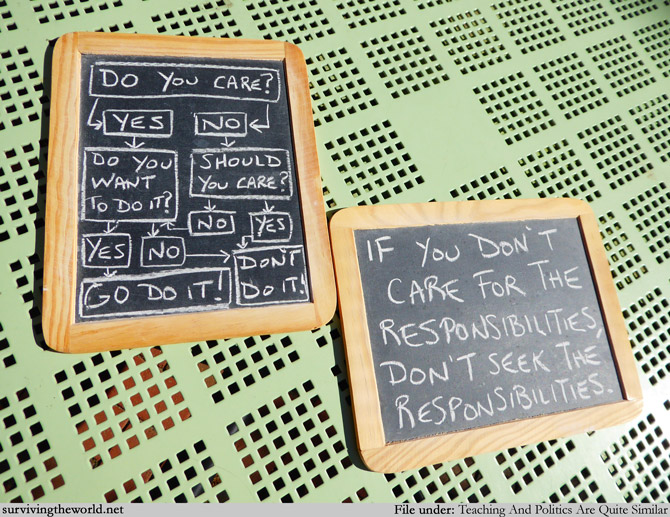 DO YOU CARE?
YES
NO
DO YOU
WANT
TO DO IT?
SHOULD
YOU CARE?
NO
YES
YES
NO
DON'T
DO IT!
GO DO IT!
IF YOU DON'T
CARE FOR THE
RESPONSIBILITIES,
DON'T SEEK THE
RESPONSIBILITIES.
survivingtheworld.net
File under: Teaching And Politics Are Quite Similar